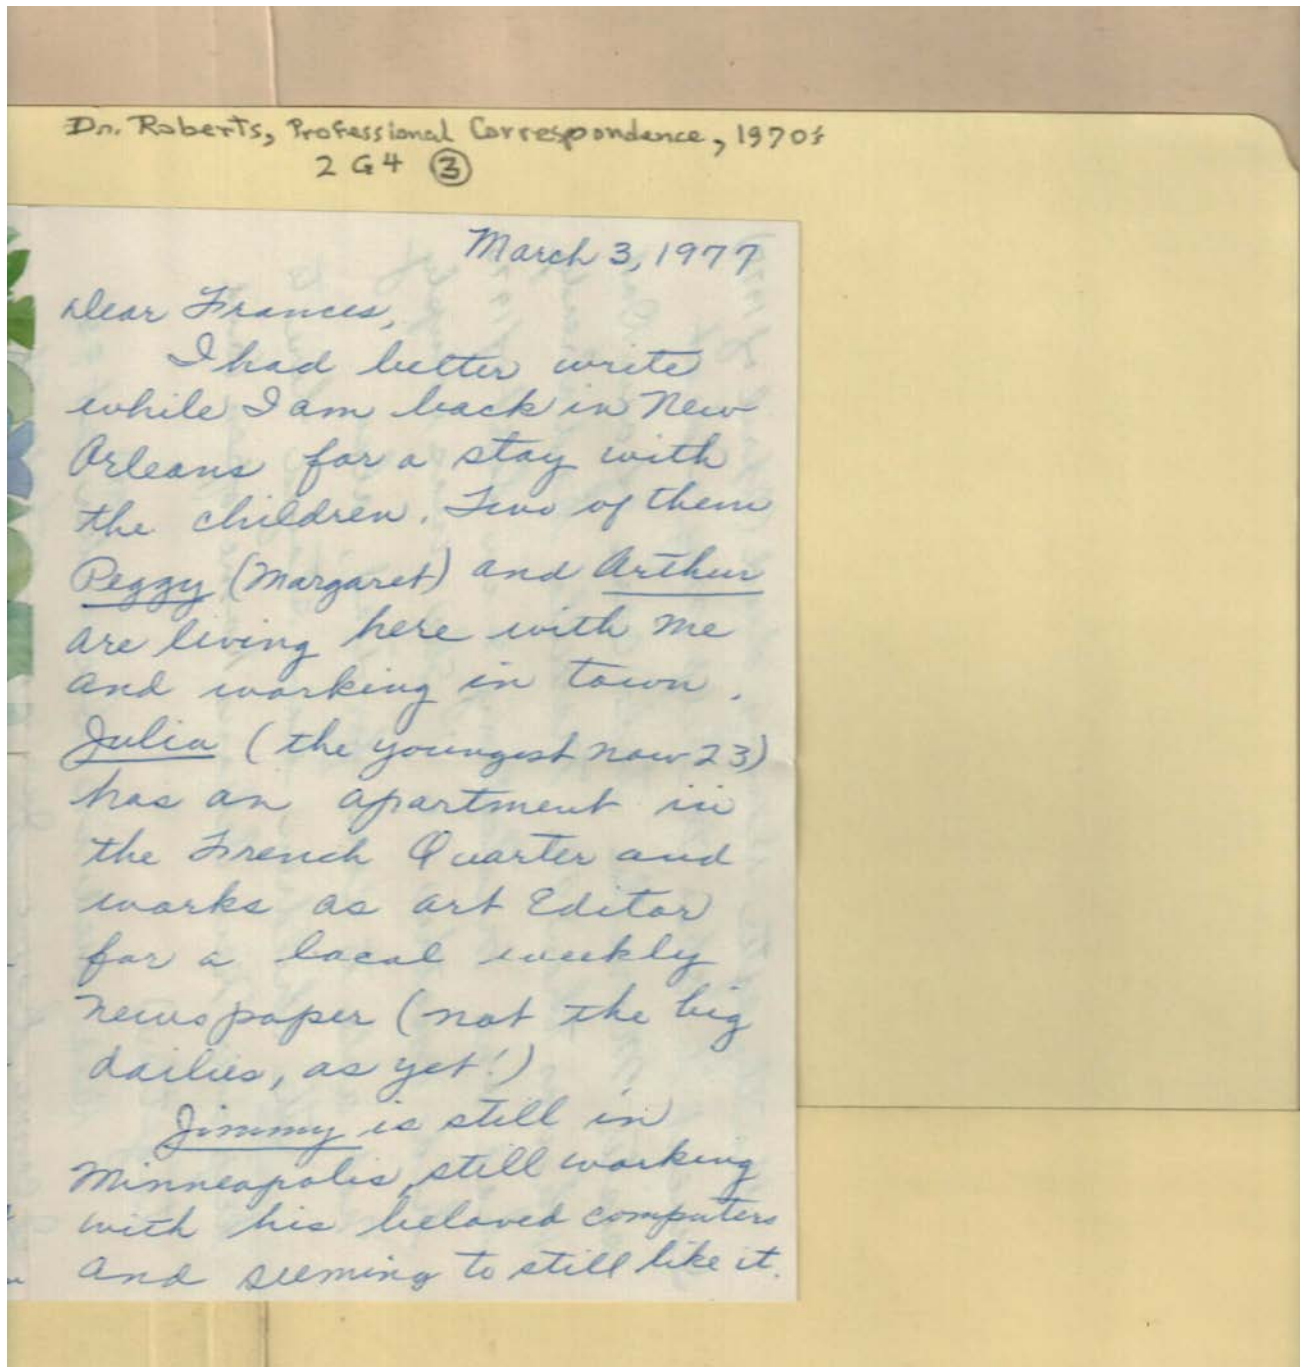 Dr. Roberts, Professional Correspondence, 1970's
2 G4 ③
March 3, 1977
Dear Frances,
I had better write
while I am back in New
Orleans for a stay with
the children. Two of them
Peggy (Margaret) and Arthur
are living here with me
and working in town.
Julia (the youngest now 23)
has an apartment in
the French Quarter and
works as art Editor
for a local weekly
newspaper (not the big
dailies, as yet!)
Jimmy is still in
Minneapolis, still working
with his beloved computers
and seeming to still like it.